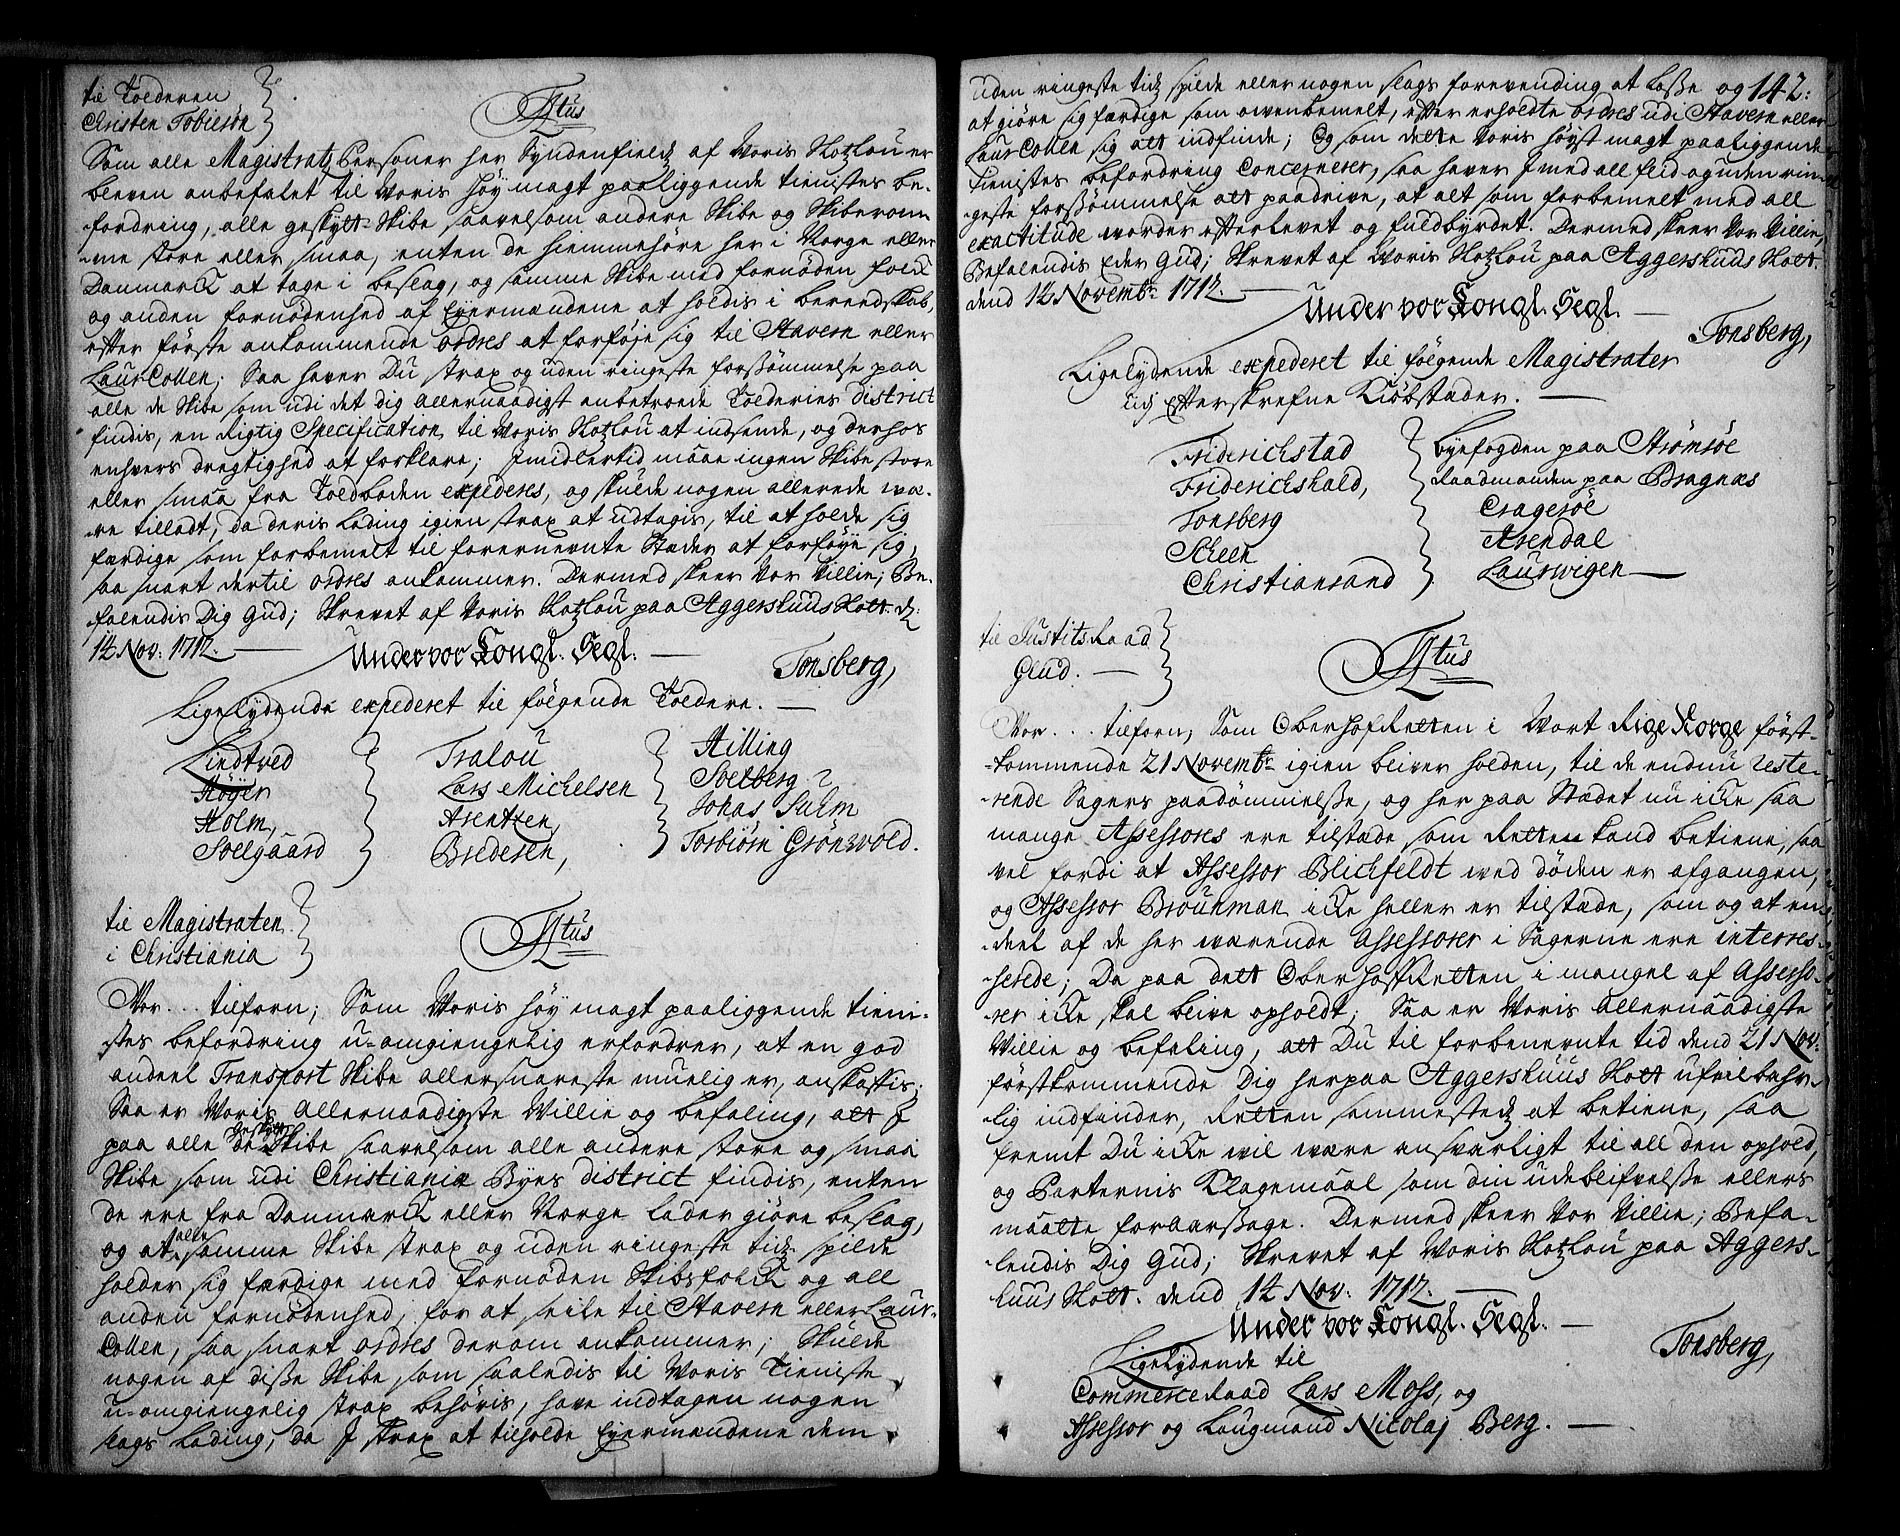 til Tolderen
Christen Tobiesøn
Ftus
Som alle Magistratz Personer her Syndenfieldz af Voris Slotzlou er
bleven anbefalet til Voris høy magt paaliggende tienistes be-
-fordring, alle geskytt Skibe saavelsom andere Skibe og Skiberom-
-me store eller smaa, enten de hiemmehøre her i Norge eller
Danmarck at tage i beslag, og samme Skibe med fornøden folck
og anden fornødenhed af Eyermændene at holdis i beredskab,
efter første ankommende ordres at forføje sig til Stavern eller
LaurCollen; Saa haver Du strax og uden ringeste forsømmelse paa
alle de Skibe som udi det dig allernaadigst anbetroede Tolderies district
findis, en rigtig Specification til Voris Slotzlou at indsende, og derhos
enhvers dregtighed at forklare; Imidlertid maae ingen Skibe store
eller smaa fra Toldboden expederes, og skulde nogen allerede væ-
-re tilladt, da deris Lading igien strax at udtagis, til at holde sig
færdige som forbemelt til forernevnte Stæder at forføye sig,
saa snart dertil ordres ankommer. Dermed skeer Vor Villie, Be-
-falendis Dig Gud; Skrevet af Voris Slotzlou paa Aggershuus Slott. d:
14 Nov: 1712.
Under vor Kongl. Segl.
Tonsberg,
Ligelydende expederet til følgende Toldere.
Lindtved
Høyer
Holm,
Soelgaard
Tralou
Lars Michelsen
Arentzen,
Bredesen,
Hilling
Soelberg
Johas Sulm
Torbiørn Grønwold.
til Magistraten
i Christiania
Ftus
Vor . . . tilforn; Som Voris høy magt paaliggende tieni-
-stes befordring u-omgiengelig erfordrer, at en god
andeel Transport Skibe allersnareste muelig er, anskaffis;
Saa er Voris Allernaadigste Villie og befaling, att I
paa alle de geskytt Skibe saavelsom alle andere store og smaa
Skibe som udi Christiania Byes district findis, enten
de ere fra Danmarck eller Norge lader giøre beslag,
og at alle samme Skibe strax og uden ringeste tidz spilde
holder sig færdige med fornøden Skibsfolck og all
anden fornødenhed, for at seile til Stavern eller Laur-
Collen, saa snart ordres derom ankommer; Skulde
nogen af disse Skibe som saaledis til Voris Tieniste
u-omgiengelig strax behøvis, have indtagen nogen
slags Lading, da I strax at tilholde Eyermændene dem
uden ringeste tidz spilde eller nogen slags forevending at losse og 142:
at giøre sig færdige som ovenbemelt, efter erholdte ordres udi Stavern eller
LaurCollen sig att indfinde; Og som dette Voris høyst magt paaliggende
Tienistes befordring Concernerer, saa haver I med all flid og uden rin-
-geste forsømmelse att paadrive, at alt som forbemelt med all
exactitude worder efterlevet og fuldbyrdet. Dermed skeer Vor Villie,
Befalendis Eder Gud; Skrevet af Voris Slotzlou paa Aggershuus Slott.
dend 14 Novembr 1712.
Under vor Kongl. Segl.
Tonsberg,
Ligelydende expederet til følgende Magistrater
udj Efterskrefne Kiøbstæder.
Friderichstad
Friderichshald,
Tonsberg
Scheen
Christiansand
byefogden paa Strømsøe
Raadmanden paa Bragnæs
Cragerøe
Arendal
Laurwigen
til Justits Raad
Glud.
Ftus
Vor . . . tilforn, Som OberhofRetten i Vort Rige Norge først-
-kommende 21 Novembr igien bliver holden, til de endnu reste-
-rende Sagers paadømmelsse, og her paa Stædet nu icke saa
mange Assessores ere tilstæde som Retten kand betiene, saa
vel fordi at Assessor Blichfeldt ved døden er afgangen,
og Assessor Brouman icke heller er tilstæde, som og at en
deel af de her værende Assessorer i Sagerne ere interres-
-serede; Da paa dett OberhoffRetten i mangel af Assesso-
-rer icke skal blive opholdt; Saa er Voris allernaadigste
Villie og befaling, att Du til forbenevnte tid dend 21 Nov:
førstkommende Dig herpaa Aggershuus Slott ufeilbahr-
-lig indfinder, Retten sammestedz at betiene, saa
fremt Du icke vil være ansvarligt til all den ophold,
og Parternis Klagemaal som din udeblifvelsse ellers
maatte foraarsage. Dermed skeer Vor Villie; Befa-
-lendis Dig Gud; Skrevet af Voris Slotzlou paa Aggers-
huus Slott. dend 14 Nov. 1712.
Under vor Kongl. Segl.
Tonsberg,
Ligelydende til
CommerceRaad Lars Moss, og
Assessor og Laugmand Nicolaj Berg.